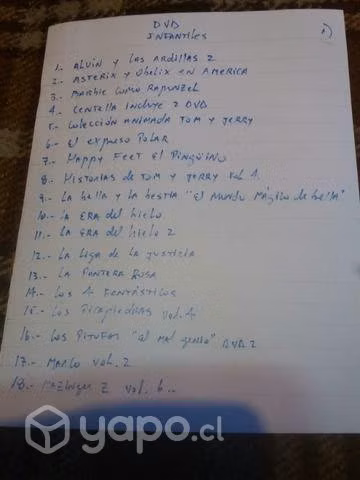 DVD
INFANTILES
1)
1.- Alvin y las Ardillas 2
2.- Asterix y Obelix en America
3.- Barbie como Rapunzel
4.- Centella incluye 2 DVD
5.- Colección Animada Tom y Jerry
6.- El expreso Polar
7.- Happy Feet El Pingüino
8.- Historias de Tom y Jerry vol 1.
9.- La bella y la bestia "El Mundo Mágico de bella"
10.- La ERA del hielo
11.- La ERA del hielo 2
12.- La liga de la Justicia
13.- La Pantera Rosa
14.- Los 4 Fantásticos
15.- Los Picapiedras vol. 4
16.- Los Pitufos "al mal genio" DVD 2
17.- Marco vol. 2
18.- Mazinger Z vol. 6..
yapo.cl